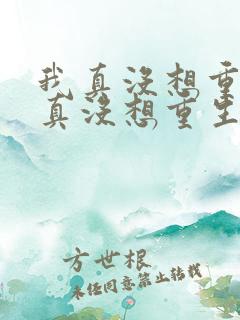 我真没想重
真没想重生
方世根
未经同意禁止转载